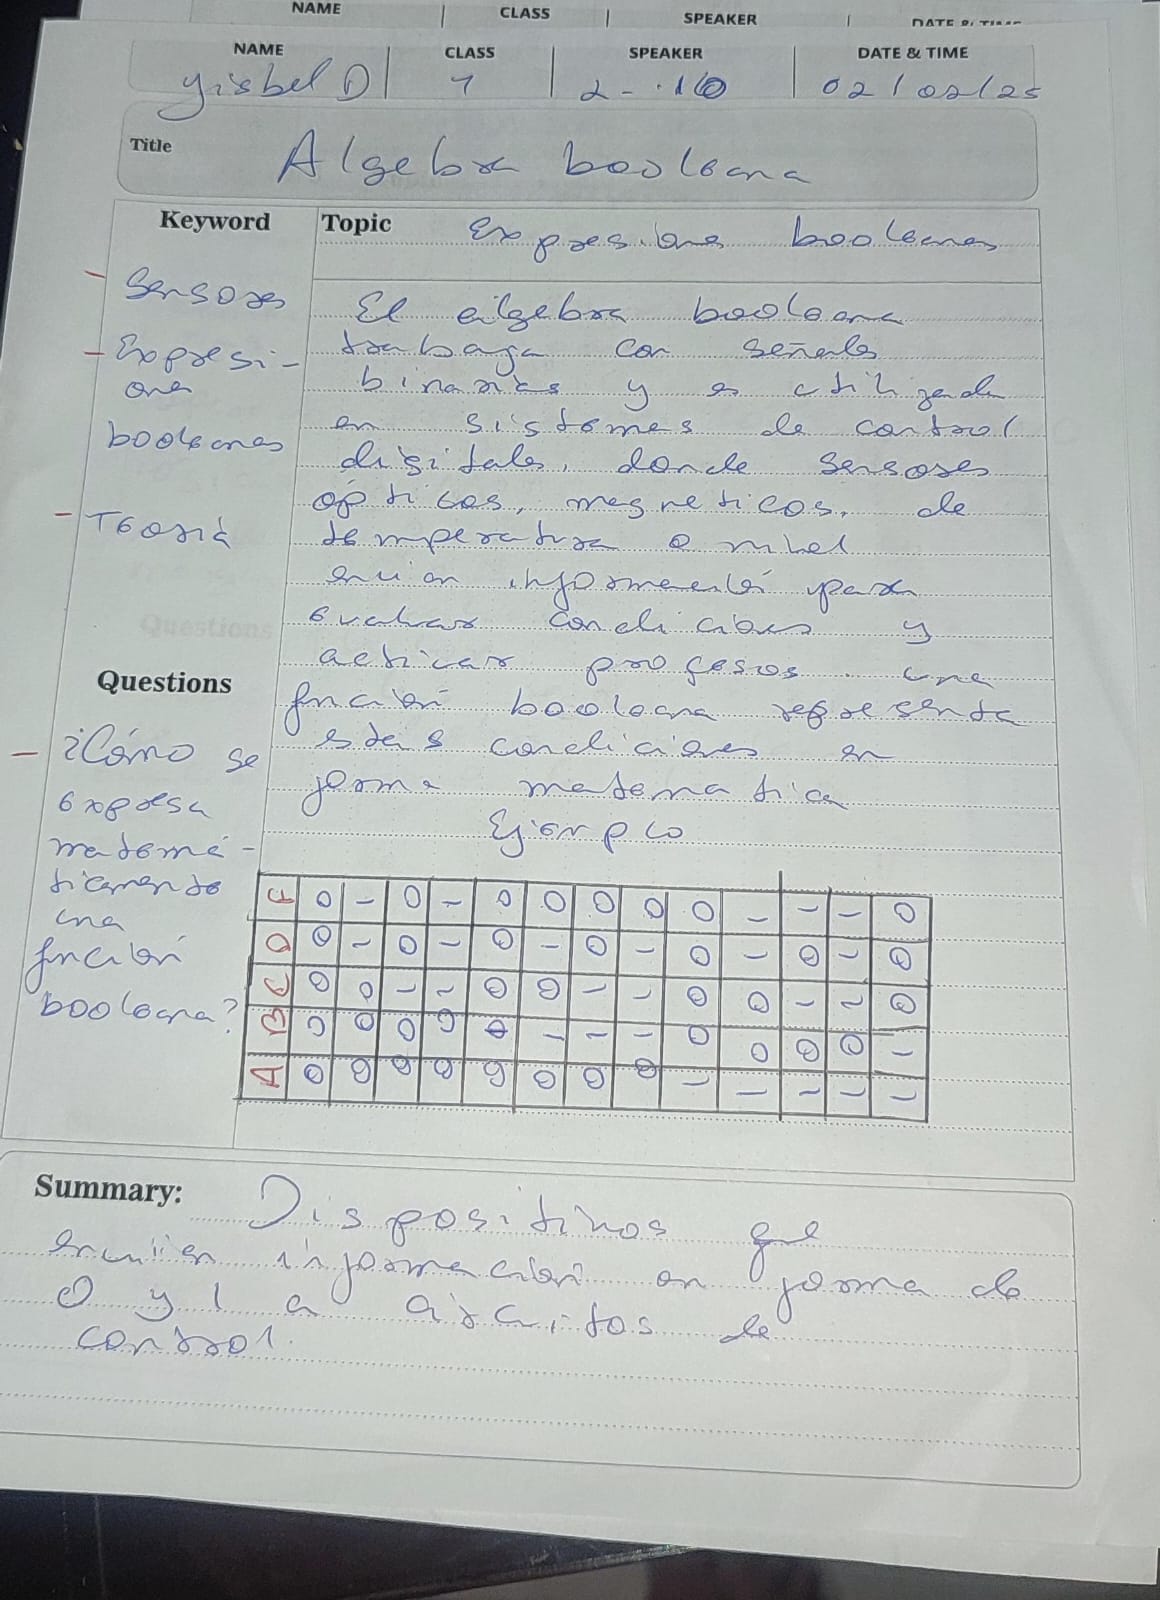 NAME CLASS SPEAKER DATE & TIME
NAME CLASS SPEAKER DATE & TIME
yisbel D 7 2-.10 02/02/25
Title Algebra booleana
Keyword
- Sensores
- Expresi-
ones
booleanas
- Teoria
Questions
- ¿Cómo se
expresa
matemá-
ticamente
una
función
booleana?
Topic Expresiones booleanas
El algebra booleana
trabaja con señales
binarias y es utilizada
en sistemas de control
digitales, donde sensores
ópticos, magneticos, de
temperatura o nivel
envian información para
evaluar condiciones y
activar procesos. una
función booleana representa
estas condiciones en
forma matematica
Ejemplo
F 0 1 0 1 0 0 0 0 0 1 1 1 0
D 0 1 0 1 0 1 0 1 0 1 0 1 0
C 0 0 1 1 0 0 1 1 0 0 1 1 0
B 0 0 0 0 0 1 1 1 0 0 0 0 1
A 0 0 0 0 0 0 0 0 1 1 1 1 1
Summary: Dispositivos que
envien información en forma de
0 y 1 a circuitos de
control.